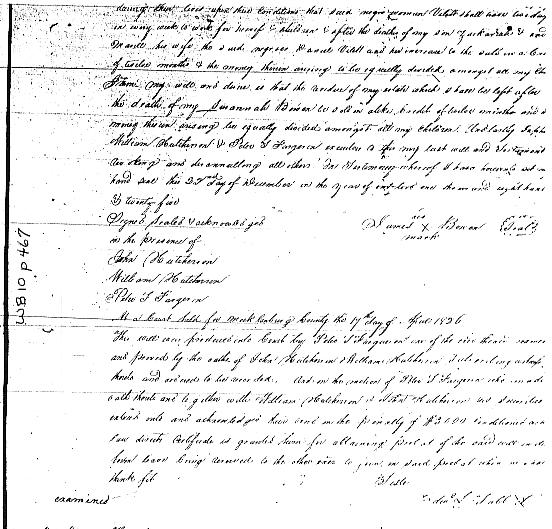 during their lives upon this condition that said negro woman Vilett shall have one day
in every week to work for herself & children & after the death of my son Zachariah & and
his wife the said negroes Vilett and her increase to be sold on a Cred
of twelve months & the money therein arising to be equally divided amongst all my chi
my will and desire is that the residue of my estate which I have left after
the death of my Susannah Bowen be sold on alike Credit of twelve months and
money therein arising be equally divided amongst all my children. And lastly
William Hutcherson & Peter T Fargeson executors to this my last will and Testament
revoking and disannulling all others In Testimony whereof I have hereunto set m
hand seal this 27th day of December in the year of our Lord one thousand eight hund
& twenty five
Signed Sealed & acknowledged
in the presence of
his
James X Bowen Seal
mark
John Hutcherson
William Hutcherson
Peter T Fargeson
At a Court held for Mecklenburg County the 17th day of April 1826
This will was produced into Court by Peter T Fargeson one of the exors therein named
and proved by the oaths of John Hutcherson & William Hutcherson subscribing witnesses
thereto and ordered to be recorded. And on the motion of Peter T Fargeson who made
oath thereto and together with William Hutcherson & John Hutcherson his securities
entered into and acknowledged their bond in the penalty of $3000 conditioned as the
law directs Certificate is granted him for obtaining probat of the said will in due
form leave being reserved to the other exor to join in said probat when he may
think fit
Teste
examined
WB 10 p 467